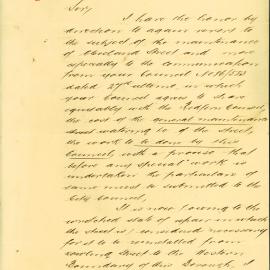 Sir,
I have the honor by
direction to again revert to
the subject of the maintenance
of Cleveland Street and more
especially to the communication
from your Council No
dated 27th ultimo, in which
your Council agree to share
equitably with the Redfern Council,
the cost of the general maintenance
street watering &c of the street,
the work to be done by this
Council, with a proviso that
before any special work is
undertaken the particulars of
same must be submitted to the
City Council.
It is now owing to the
wretched state of repair in which
the street is, considered necessary
for it to be remetalled from
street to the Western
Boundary of this Borough, &